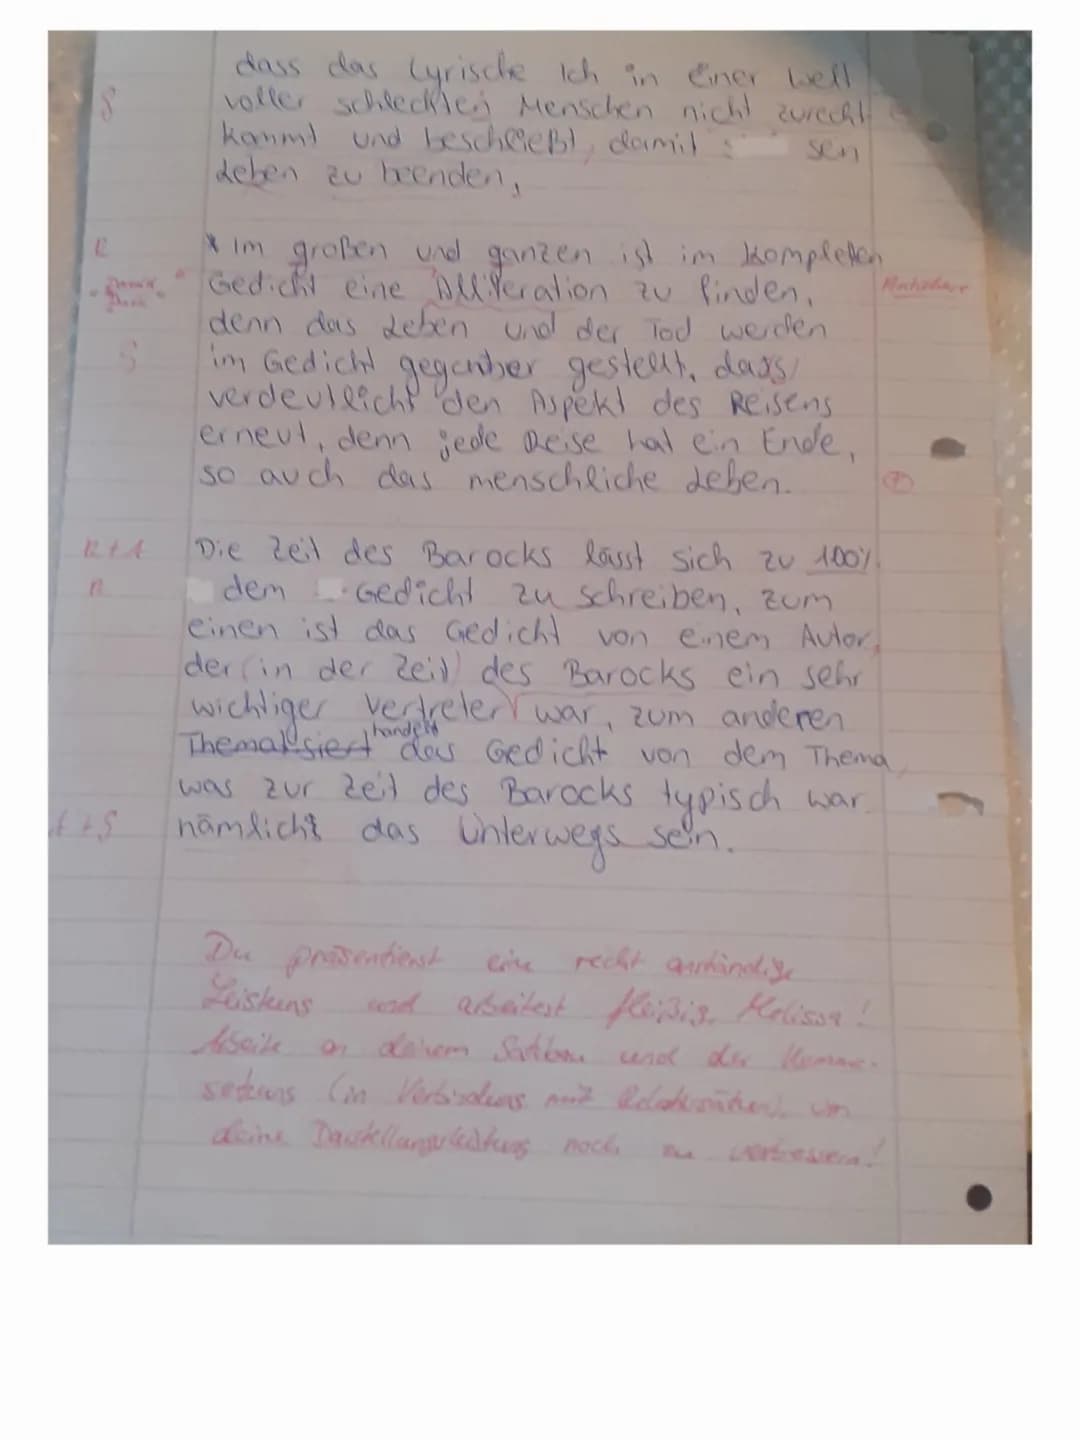 dass das Lyrische Ich in einer Welt
S voller schlechten Menschen nicht zurecht
kommt und beschließt, damit sein
Leben zu beenden,
R * Im großen und ganzen ist im kompletten
Gedicht eine Alliteration zu finden,
denn das Leben und der Tod werden
S im Gedicht gegenüber gestellt, dass
verdeutlicht den Aspekt des Reisens
erneut, denn jede Reise hat ein Ende,
so auch das menschliche Leben.
R+A Die Zeit des Barocks lässt sich zu 100%
n dem Gedicht zu schreiben, zum
einen ist das Gedicht von einem Autor,
der (in der Zeit) des Barocks ein sehr
wichtiger Vertreter war, zum anderen
handelt
Thematisiert das Gedicht von dem Thema,
was zur Zeit des Barocks typisch war.
nämlicht das Unterwegs sein.
Du präsentierst eine recht anständige
Leistung und arbeitest fleißig, Melissa!
Arbeite an deinem Satzbau und der Komma-
setzung (in Verbindung mit Relativsätzen), um
deine Darstellungsleistung noch zu verbessern!